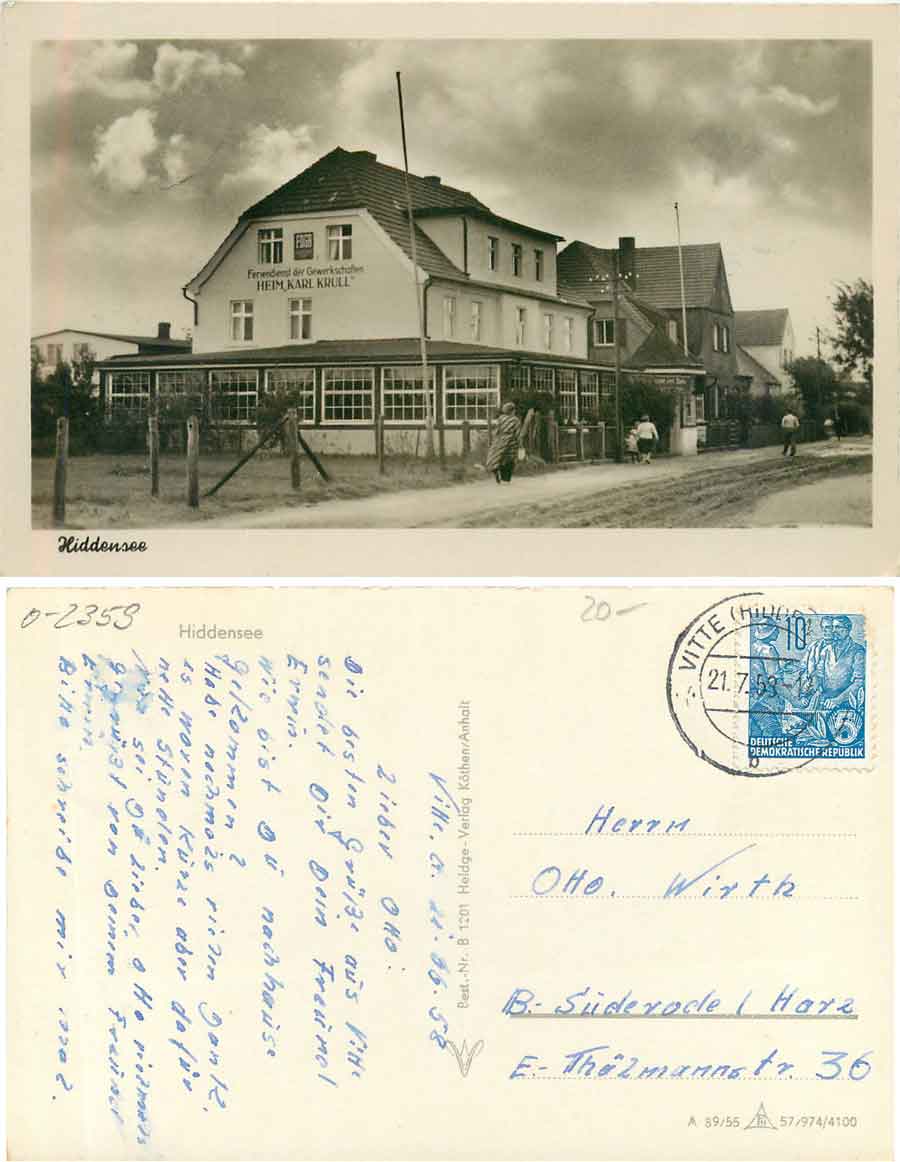 FDGB
Feriendienst der Gewerkschaften
HEIM „KARL KRULL"
Hiddensee
0-2359
Hiddensee
20-
VITTE (HIDDE
21.7.58-12
b
10
DEUTSCHE
DEMOKRATISCHE REPUBLIK
Vitte, d. 21. 06. 58
Lieber Otto.
Die besten Grüße aus Vitte
sendet Dir Dein Freund
Erwin.
Wie bist Du nachhause
gekommen?
Habe nochmals vielen Dank.
es waren kurze aber dafür
nette Stunden.
sei Du lieber Otto vielmals
gegrüßt von Deinem Freund
Erwin.
Bitte schreibe mir mal.
Best.-Nr. B 1201 Heldge-Verlag Köthen/Anhalt
Herrn
Otto. Wirth
B.- Süderode / Harz
E.- Thälmannstr. 36
A 89/55 57/974/4100